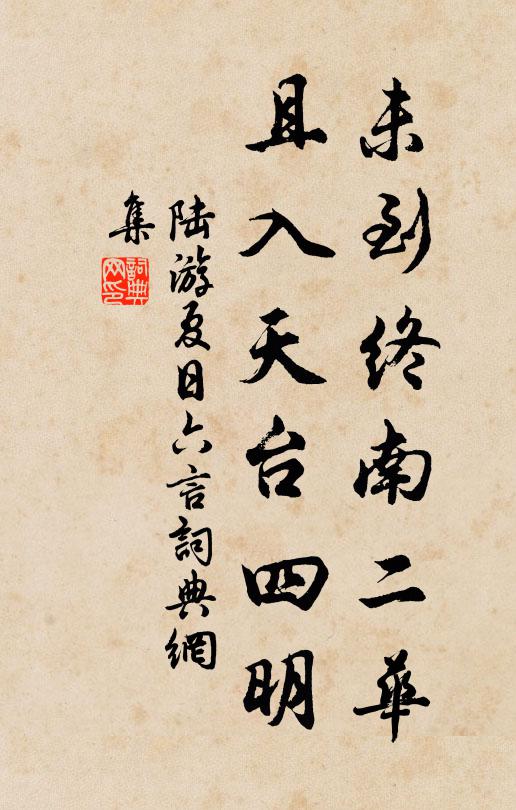 未到终南二華
且入天台四明
陆游夏日六言詞典網
集
詞典
网印